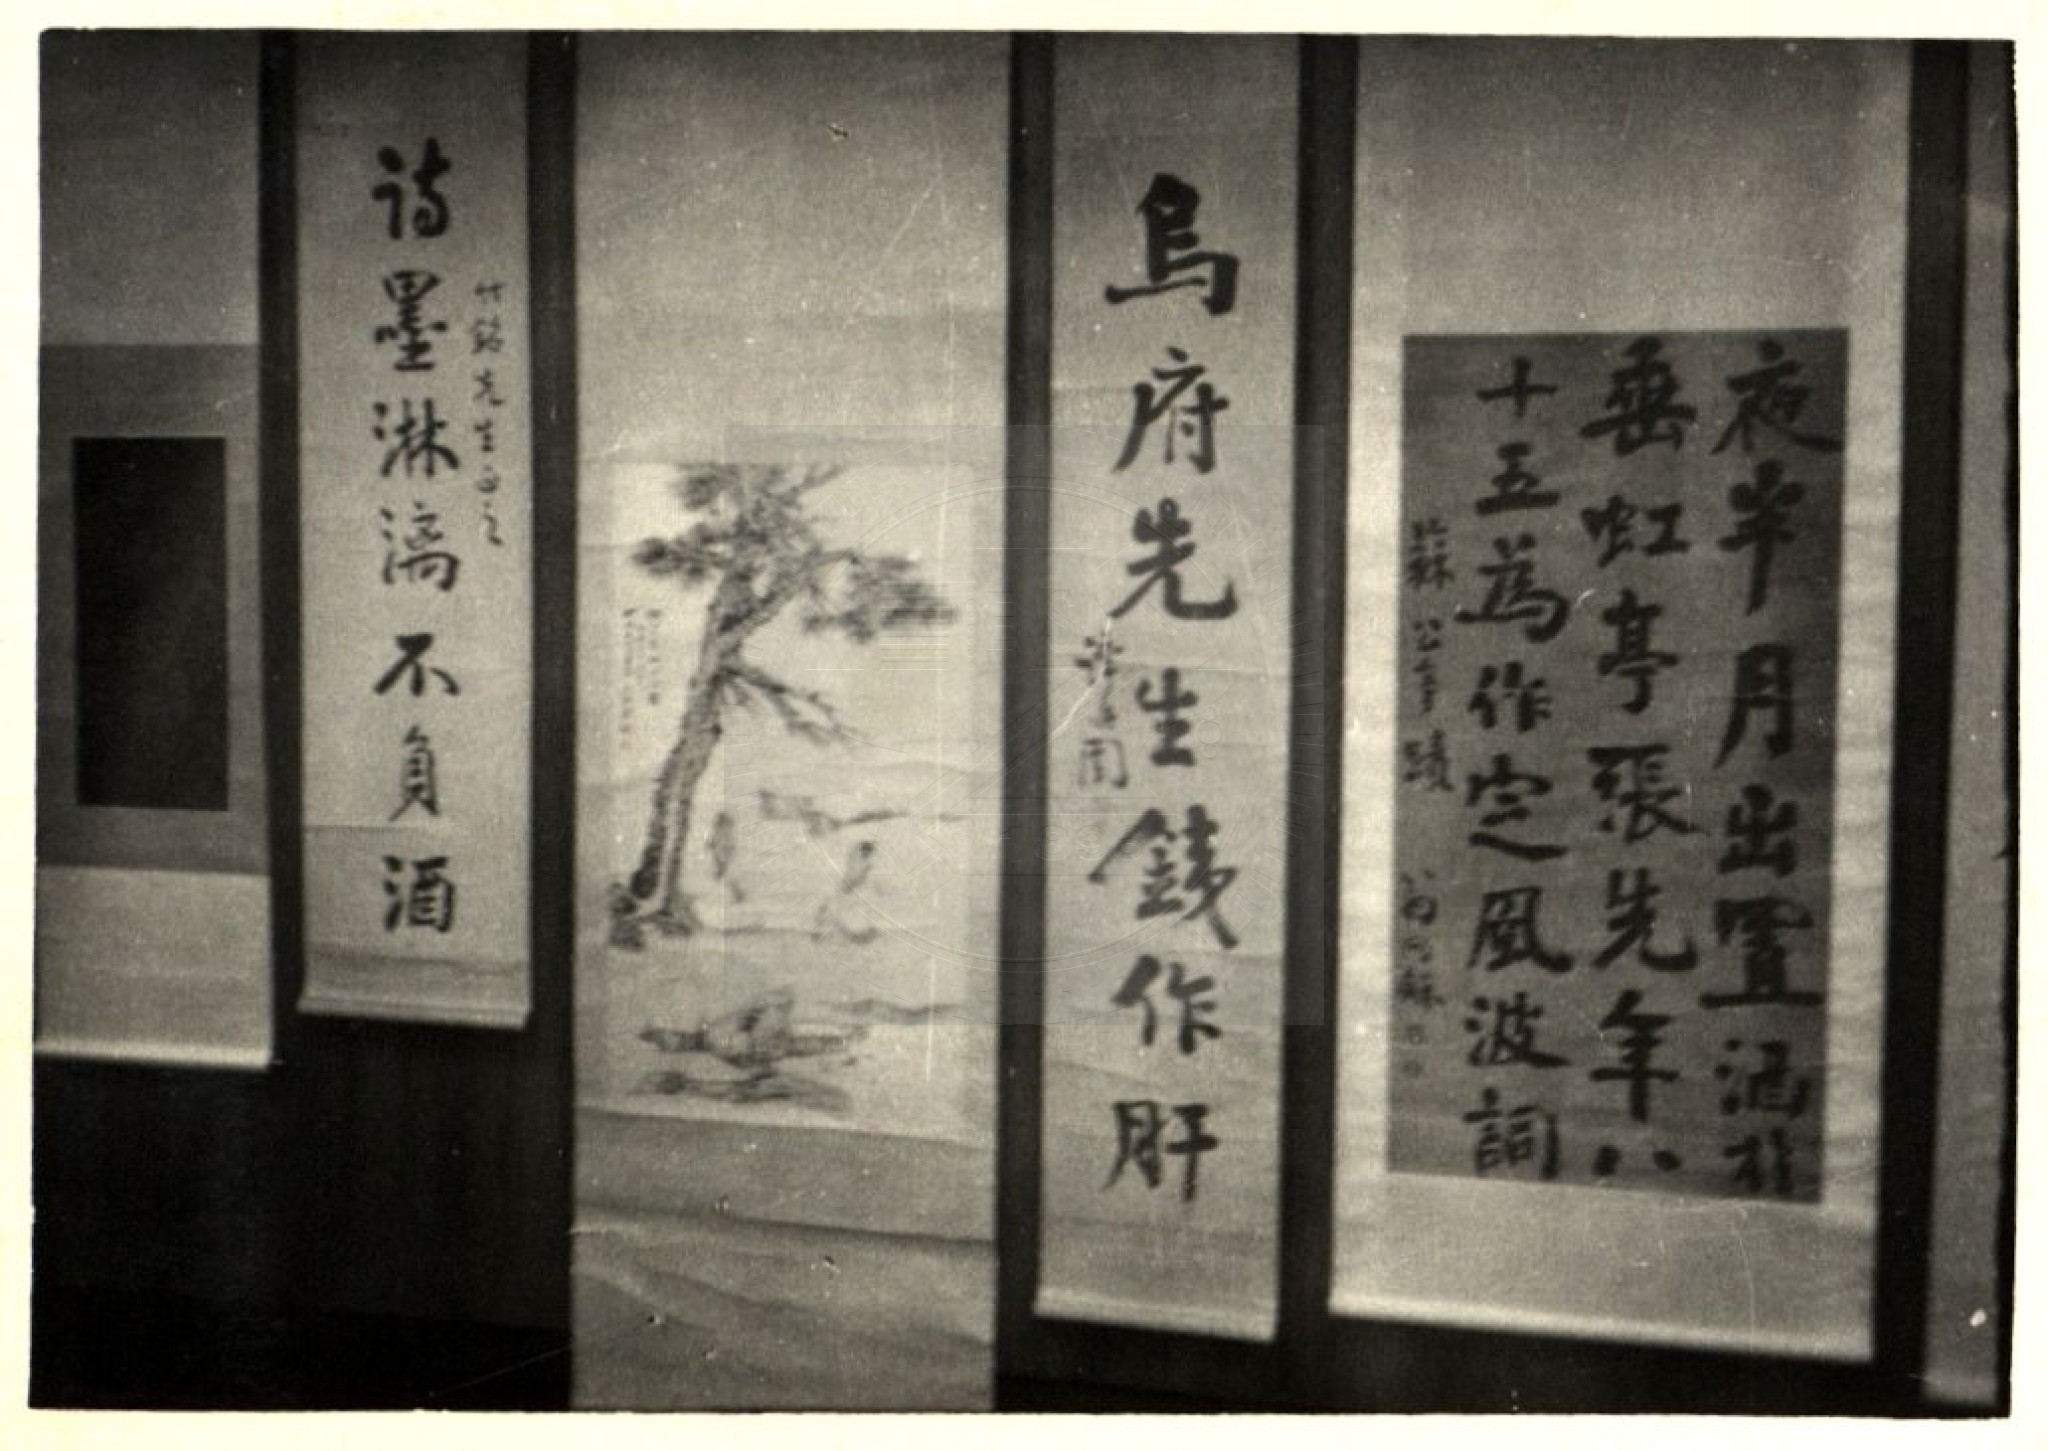 夜半月出置酒於
垂虹亭張先年八
十五為作定風波詞
蘇公筆蹟
烏府先生鐵作肝
詩墨淋漓不負酒
竹銘先生正之